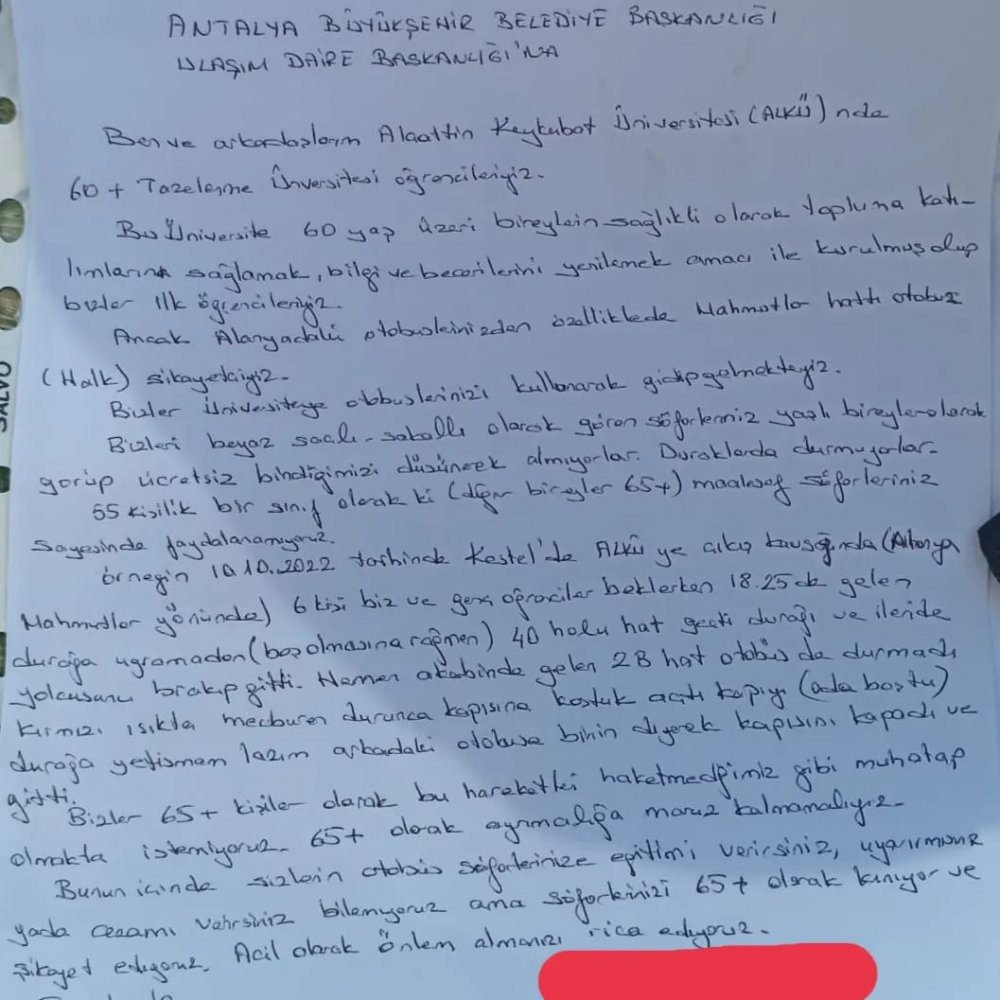 ANTALYA BÜYÜKŞEHİR BELEDİYE BAŞKANLIĞI
ULAŞIM DAİRE BAŞKANLIĞI'NA
Ben ve arkadaşlarım Alaattin Keykubat Üniversitesi (ALKÜ) nde
60 + Tazelenme Üniversitesi öğrencileriyiz.
Bu Üniversite 60 yaş üzeri bireylein sağlıklı olarak topluma katı-
lımlarını sağlamak, bilgi ve becerilerini yenilemek amacı ile kurulmuş olup
bizler ilk öğrencileriyiz.
Ancak Alanyadaki otobüslerinizden özelliklede Mahmutlar hattı otobüs
(Halk) şikayetçiyiz.
Bizler Üniversiteye otobüslerinizi kullanarak gidip gelmekteyiz.
Bizleri beyaz saçlı-sakallı olarak gören şöförleriniz yaşlı bireyler olarak
görüp ücretsiz bindiğimizi düşünerek almıyorlar. Duraklarda durmuyorlar.
55 kişilik bir sınıf olarak ki (diğer bireyler 65+) maalesef şöförleriniz
sayesinde faydalanamıyoruz.
örneğin 10.10.2022 tarihinde Kestel'de ALKÜ ye çıkış kavşağında (Alanya
Mahmutlar yönünde) 6 kişi biz ve genç öğrenciler beklerken 18.25 de gelen
durağa uğramadan (boş olmasına rağmen) 40 nolu hat geçti durağı ve ileride
yolcusunu bırakıp gitti. Hemen akabinde gelen 2B hat otobüs de durmadı
kırmızı ışıkta mecburen durunca kapısına koştuk açtı kapıyı (oda boştu)
durağa yetişmem lazım arkadaki otobüse binin diyerek kapısını kapadı ve
gitti.
Bizler 65+ kişiler olarak bu hareketki haketmediğimiz gibi muhatap
olmakta istemiyoruz. 65+ olarak ayrımcılığa maruz kalmamalıyız.
Bunun içinde sizlerin otobüs şöförlerinize eğitimi verirsiniz, uyarırmısınız
yada cezamı verirsiniz bilemiyoruz ama şöförlerinizi 65+ olarak kınıyor ve
şikayet ediyoruz. Acil olarak önlem almanızı rica ediyoruz.
SALVO